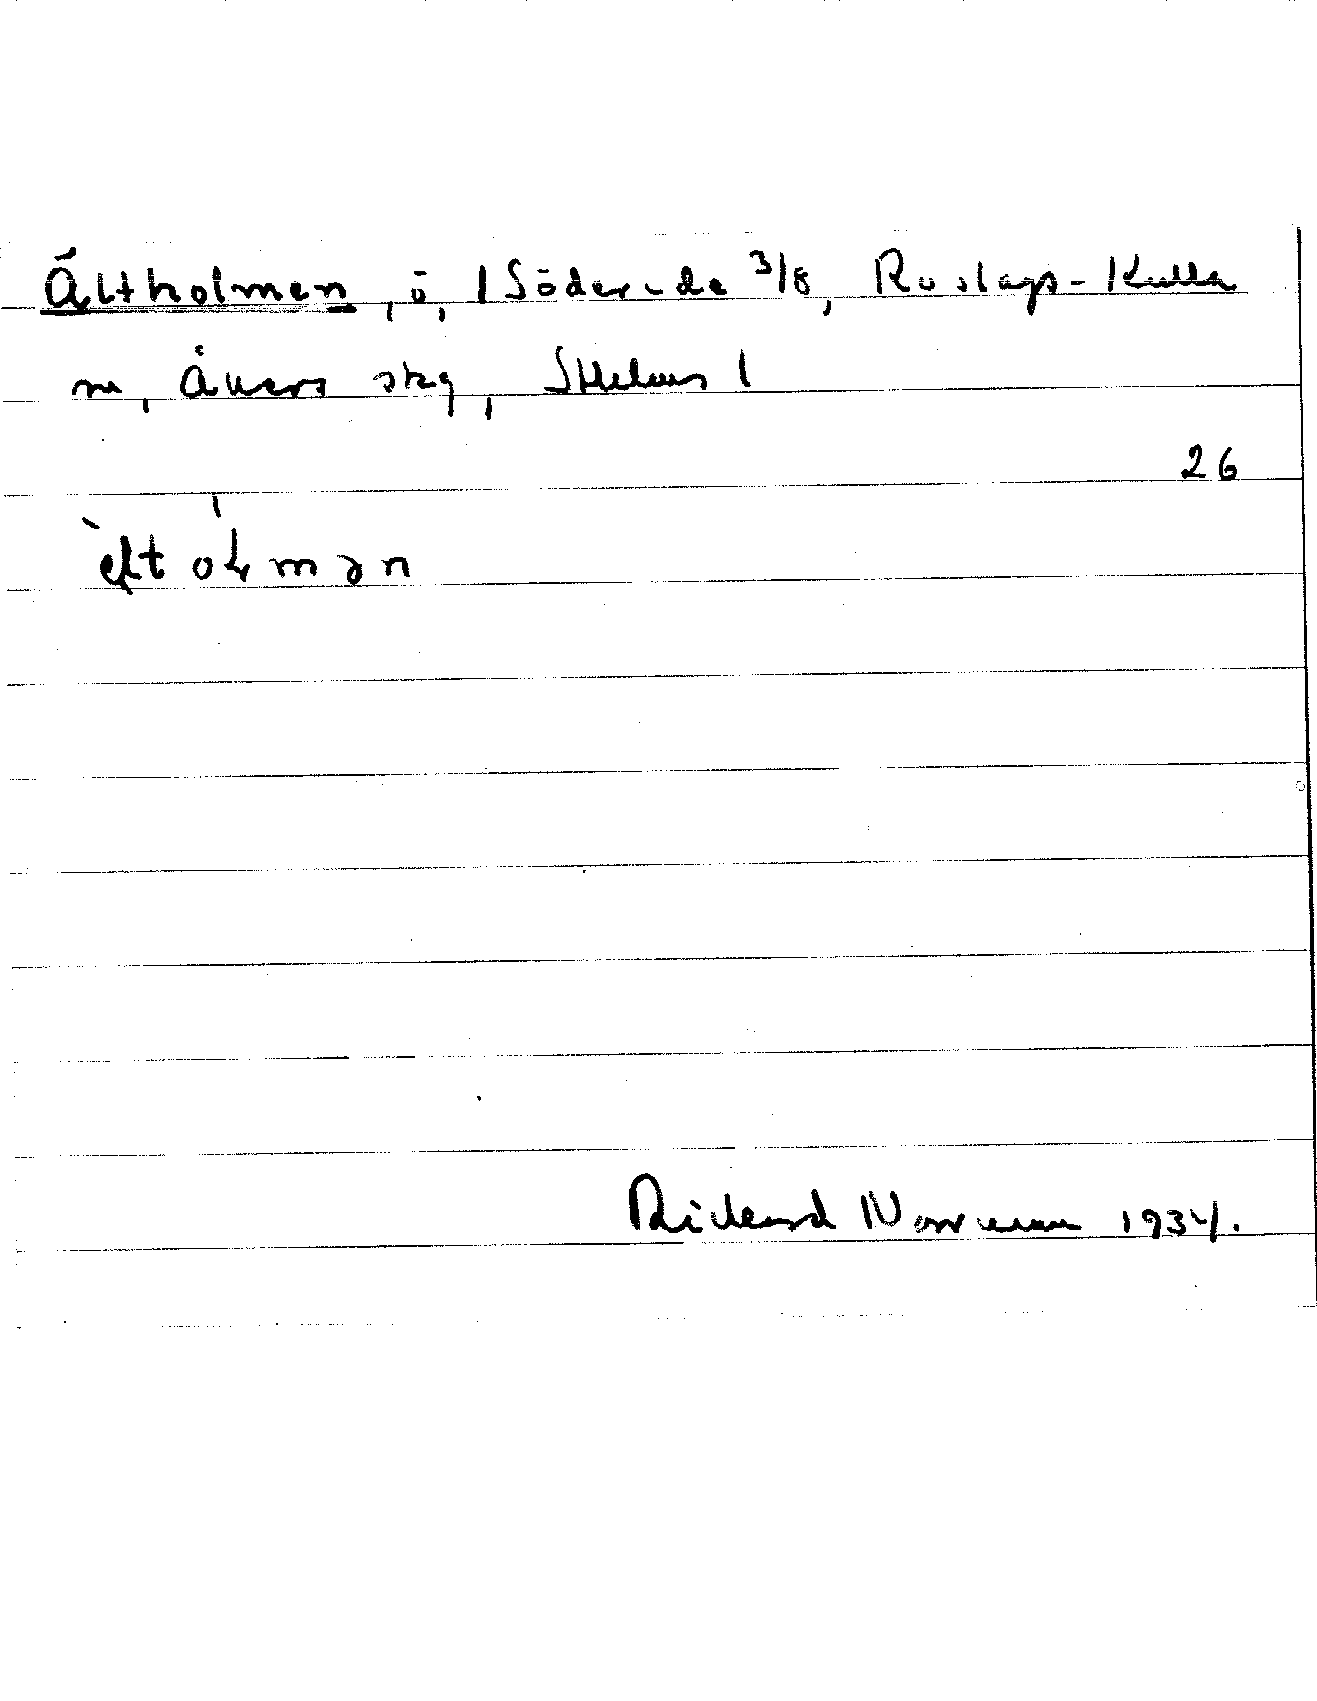 Ältholmen, ö, 1 Söderede 3/8, Roslags-Kulla
sn, Åkers skg, Sthlms l
26
èltòlmən
Rickard Norrman 1934.